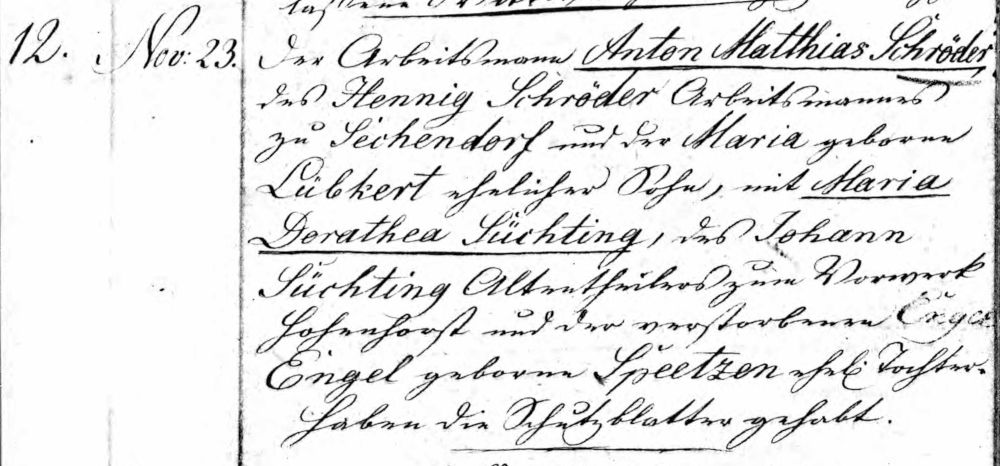 12. Nov: 23. Der Arbeitsmann Anton Matthias Schröder,
des Hennig Schröder Arbeitsmannes
zu Sechendorf und der Maria geborne
Lübkert ehelicher Sohn, mit Maria
Dorathea Süchting, des Johann
Süchting Altentheilers zum Vorwerk
Hohenhorst und der verstorbenen
Engel geborne Speetzen ehel: Tochter.
haben die Schutzblatter gehabt.